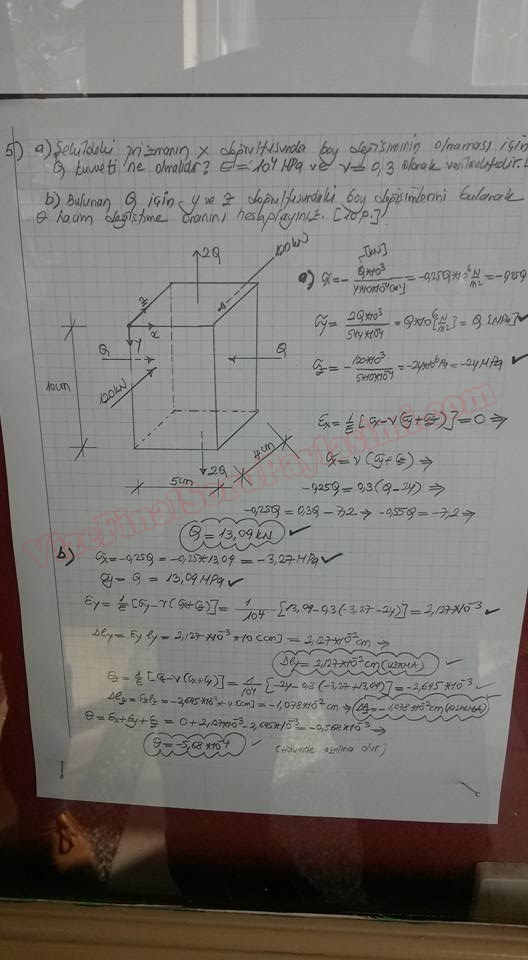 5) a) Şekildeki prizmanın x doğrultusunda boy değişiminin olmaması için
Q kuvveti ne olmalıdır? E=10⁴ MPa ve ν=0,3 olarak verilmektedir.
b) Bulunan Q için y ve z doğrultusundaki boy değişimlerini bularak
θ hacim değiştirme oranını hesaplayınız. [10 p.]
2Q
120kN
z
x
y
Q
Q
120kN
10cm
2Q
5cm
4cm
a) σx = - Q*10³ [kN] / 4*10*10⁻⁴ [m²] = -0,25Q*10⁶ N/m² = -0,25Q
σy = 2Q*10³ / 5*4*10⁻⁴ = Q*10⁶ [N/m²] = Q [MPa] ✓
σz = - 120*10³ / 5*10*10⁻⁴ = -24*10⁶ Pa = -24 MPa ✓
εx = 1/E [σx - ν(σy+σz)] = 0 ⇒
σx = ν(σy+σz) ⇒
-0,25Q = 0,3(Q-24) ⇒
-0,25Q = 0,3Q - 7,2 ⇒ -0,55Q = -7,2 ⇒
Q = 13,09 kN ✓
VizeFinalSoruPaylasimi.com
b) σx = -0,25Q = -0,25*13,09 = -3,27 MPa ✓
σy = Q = 13,09 MPa ✓
εy = 1/E [σy - ν(σx+σz)] = 1/10⁴ [13,09 - 0,3(-3,27-24)] = 2,127*10⁻³ ✓
Δly = εy ly = 2,127*10⁻³*10 [cm] = 2,127*10⁻² cm ⇒
Δly = 2,127*10⁻² cm (UZAMA) ✓
εz = 1/E [σz - ν(σx+σy)] = 1/10⁴ [-24 - 0,3(-3,27+13,09)] = -2,695*10⁻³ ✓
Δlz = εz lz = -2,695*10⁻³*4 [cm] = -1,078*10⁻² cm ⇒ Δlz = -1,078*10⁻² cm (KISALMA) ✓
θ = εx+εy+εz = 0 + 2,127*10⁻³ - 2,695*10⁻³ = -0,568*10⁻³ ⇒
θ = -5,68*10⁻⁴ ✓ (Hacimde azalma olur)